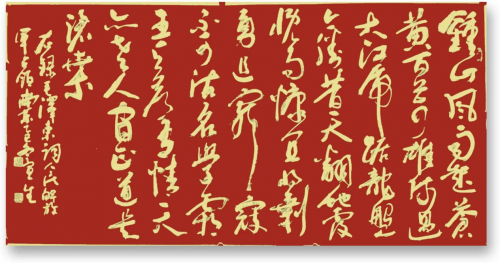 鍾山風雨起蒼
黄百万雄师过
大江虎踞龍盤
今勝昔天翻地覆
慨而慷宜将剩
勇追窮寇
不可沽名学霸
王天若有情天
亦老人间正道是
滄桑
右録毛澤東詞人民解放
軍占領南京